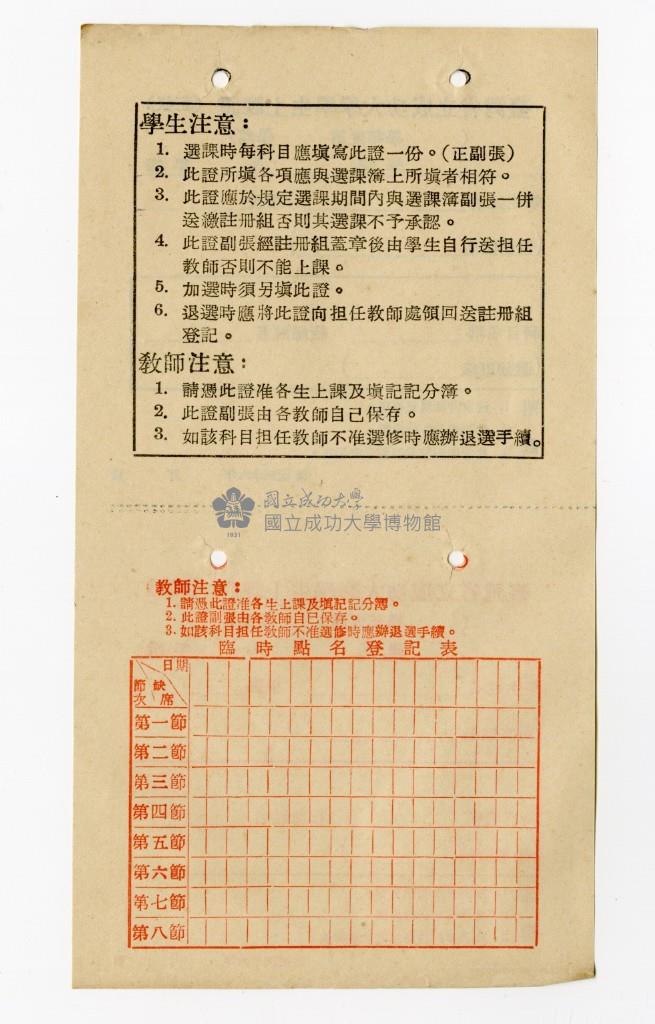 學生注意：
1. 選課時每科目應填寫此證一份。(正副張)
2. 此證所填各項應與選課簿上所填者相符。
3. 此證應於規定選課期間內與選課簿副張一併
送繳註冊組否則其選課不予承認。
4. 此證副張經註冊組蓋章後由學生自行送担任
教師否則不能上課。
5. 加選時須另填此證。
6. 退選時應將此證向担任教師處領回送註冊組
登記。
教師注意：
1. 請憑此證准各生上課及填記記分簿。
2. 此證副張由各教師自己保存。
3. 如該科目担任教師不准選修時應辦退選手續。
國立成功大學
國立成功大學博物館
1931
教師注意：
1. 請憑此證准各生上課及填記記分簿。
2. 此證副張由各教師自己保存。
3. 如該科目担任教師不准選修時應辦退選手續。
臨時點名登記表
日期
缺席
節次
第一節
第二節
第三節
第四節
第五節
第六節
第七節
第八節